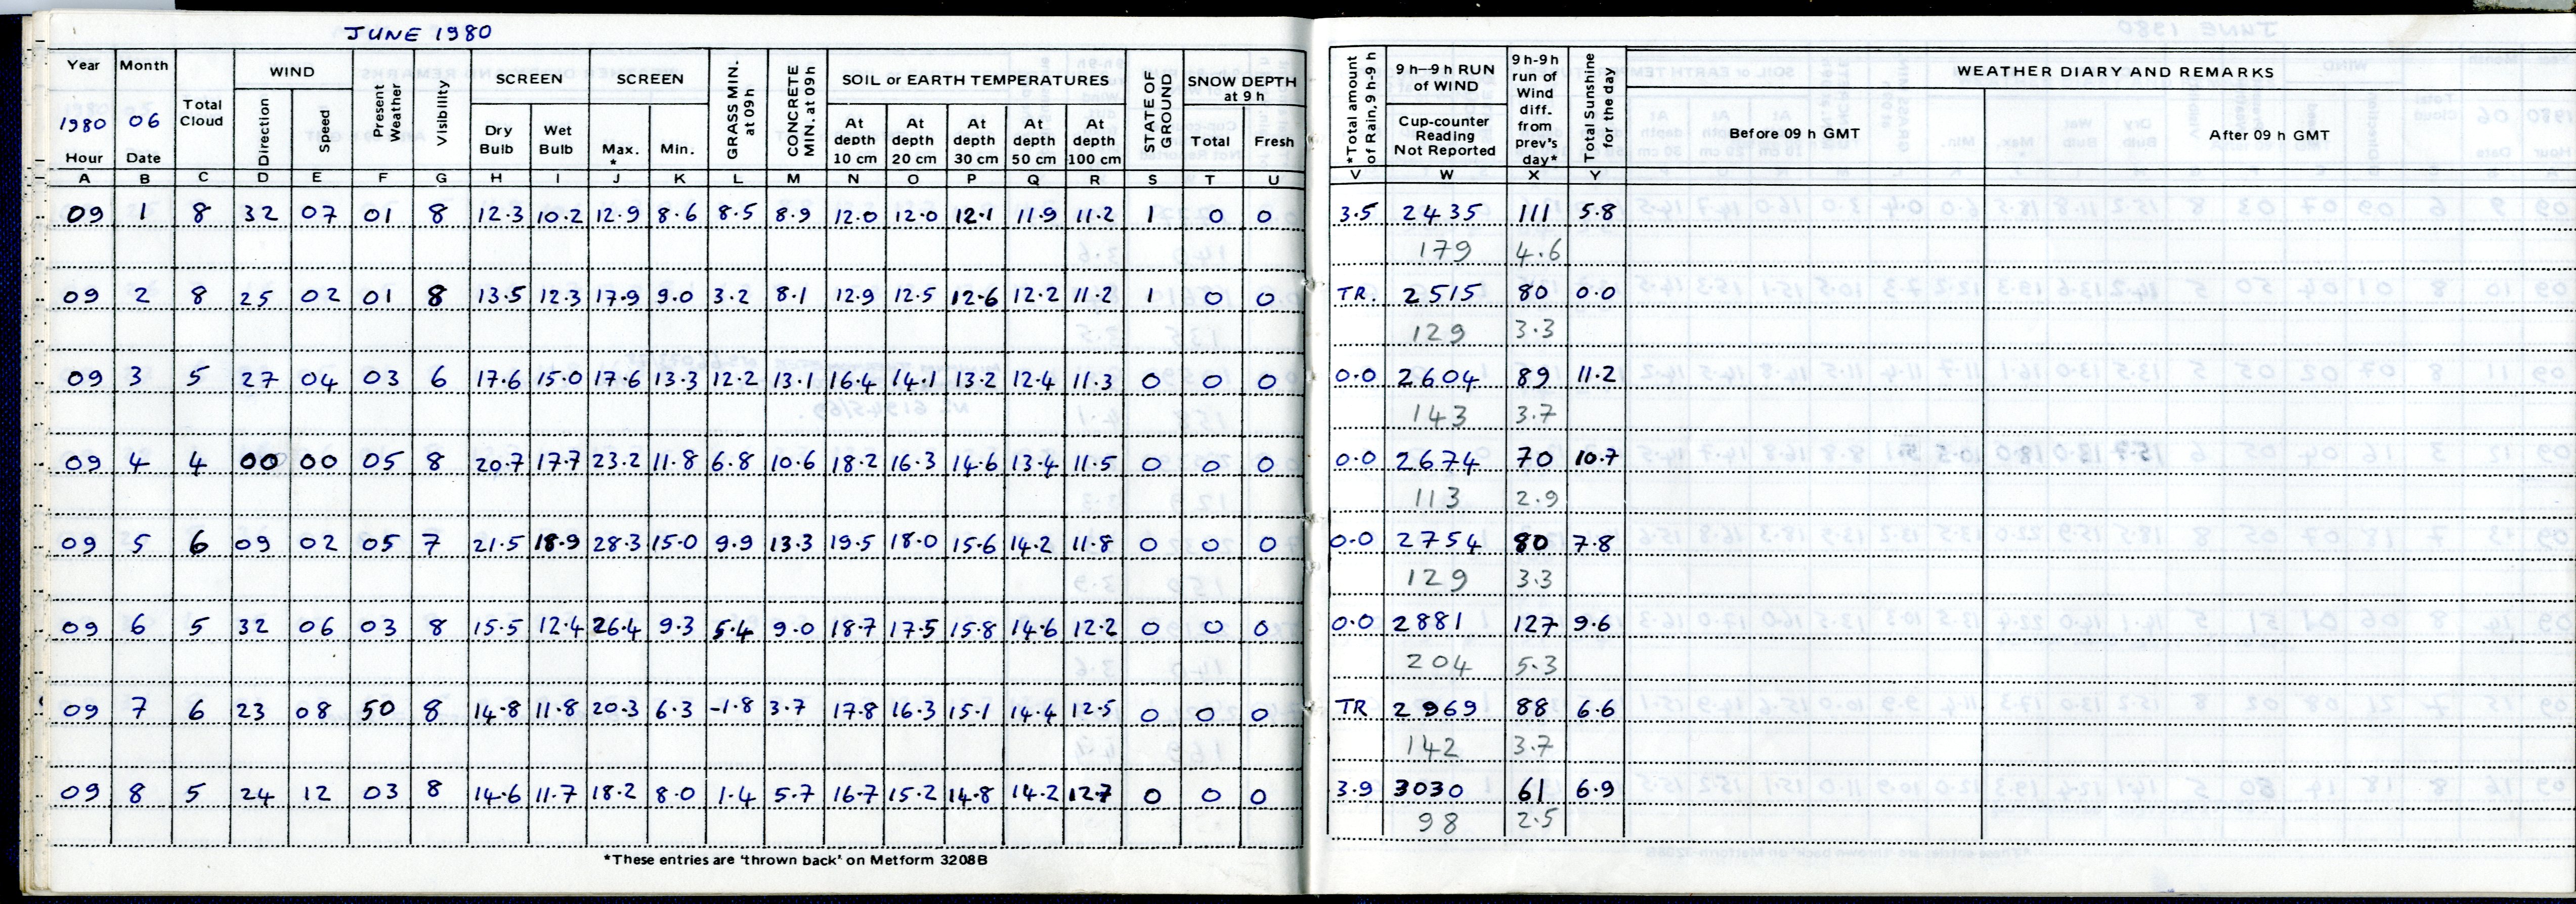 JUNE 1980
Year Month Total Cloud WIND Present Weather Visibility SCREEN SCREEN GRASS MIN. at 09h CONCRETE MIN. at 09h SOIL or EARTH TEMPERATURES STATE OF GROUND SNOW DEPTH at 9 h *Total amount of Rain, 9 h-9 h 9 h–9 h RUN of WIND 9h-9h run of Wind diff. from prev's day* Total Sunshine for the day WEATHER DIARY AND REMARKS
1980 06 Direction Speed Dry Bulb Wet Bulb Max. * Min. At depth 10 cm At depth 20 cm At depth 30 cm At depth 50 cm At depth 100 cm Total Fresh Cup-counter Reading Not Reported Before 09 h GMT After 09 h GMT
Hour Date
A B C D E F G H I J K L M N O P Q R S T U V W X Y
09 1 8 32 07 01 8 12.3 10.2 12.9 8.6 8.5 8.9 12.0 12.0 12.1 11.9 11.2 1 0 0 3.5 2435 111 5.8
179 4.6
09 2 8 25 02 01 8 13.5 12.3 17.9 9.0 3.2 8.1 12.9 12.5 12.6 12.2 11.2 1 0 0 TR. 2515 80 0.0
129 3.3
09 3 5 27 04 03 6 17.6 15.0 17.6 13.3 12.2 13.1 16.4 14.1 13.2 12.4 11.3 0 0 0 0.0 2604 89 11.2
143 3.7
09 4 4 00 00 05 8 20.7 17.7 23.2 11.8 6.8 10.6 18.2 16.3 14.6 13.4 11.5 0 0 0 0.0 2674 70 10.7
113 2.9
09 5 6 09 02 05 7 21.5 18.9 28.3 15.0 9.9 13.3 19.5 18.0 15.6 14.2 11.8 0 0 0 0.0 2754 80 7.8
129 3.3
09 6 5 32 06 03 8 15.5 12.4 26.4 9.3 5.4 9.0 18.7 17.5 15.8 14.6 12.2 0 0 0 0.0 2881 127 9.6
204 5.3
09 7 6 23 08 50 8 14.8 11.8 20.3 6.3 -1.8 3.7 17.8 16.3 15.1 14.4 12.5 0 0 0 TR 2969 88 6.6
142 3.7
09 8 5 24 12 03 8 14.6 11.7 18.2 8.0 1.4 5.7 16.7 15.2 14.8 14.2 12.7 0 0 0 3.9 3030 61 6.9
98 2.5
*These entries are 'thrown back' on Metform 3208B